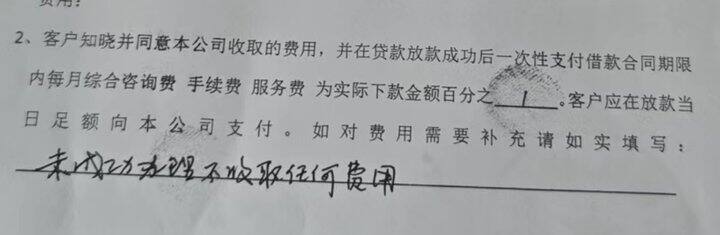 费用:
2、客户知晓并同意本公司收取的费用，并在贷款放款成功后一次性支付借款合同期限
内每月综合咨询费 手续费 服务费 为实际下款金额百分之 1 。客户应在放款当
日足额向本公司支付。如对费用需要补充请如实填写：
未成功办理不收取任何费用